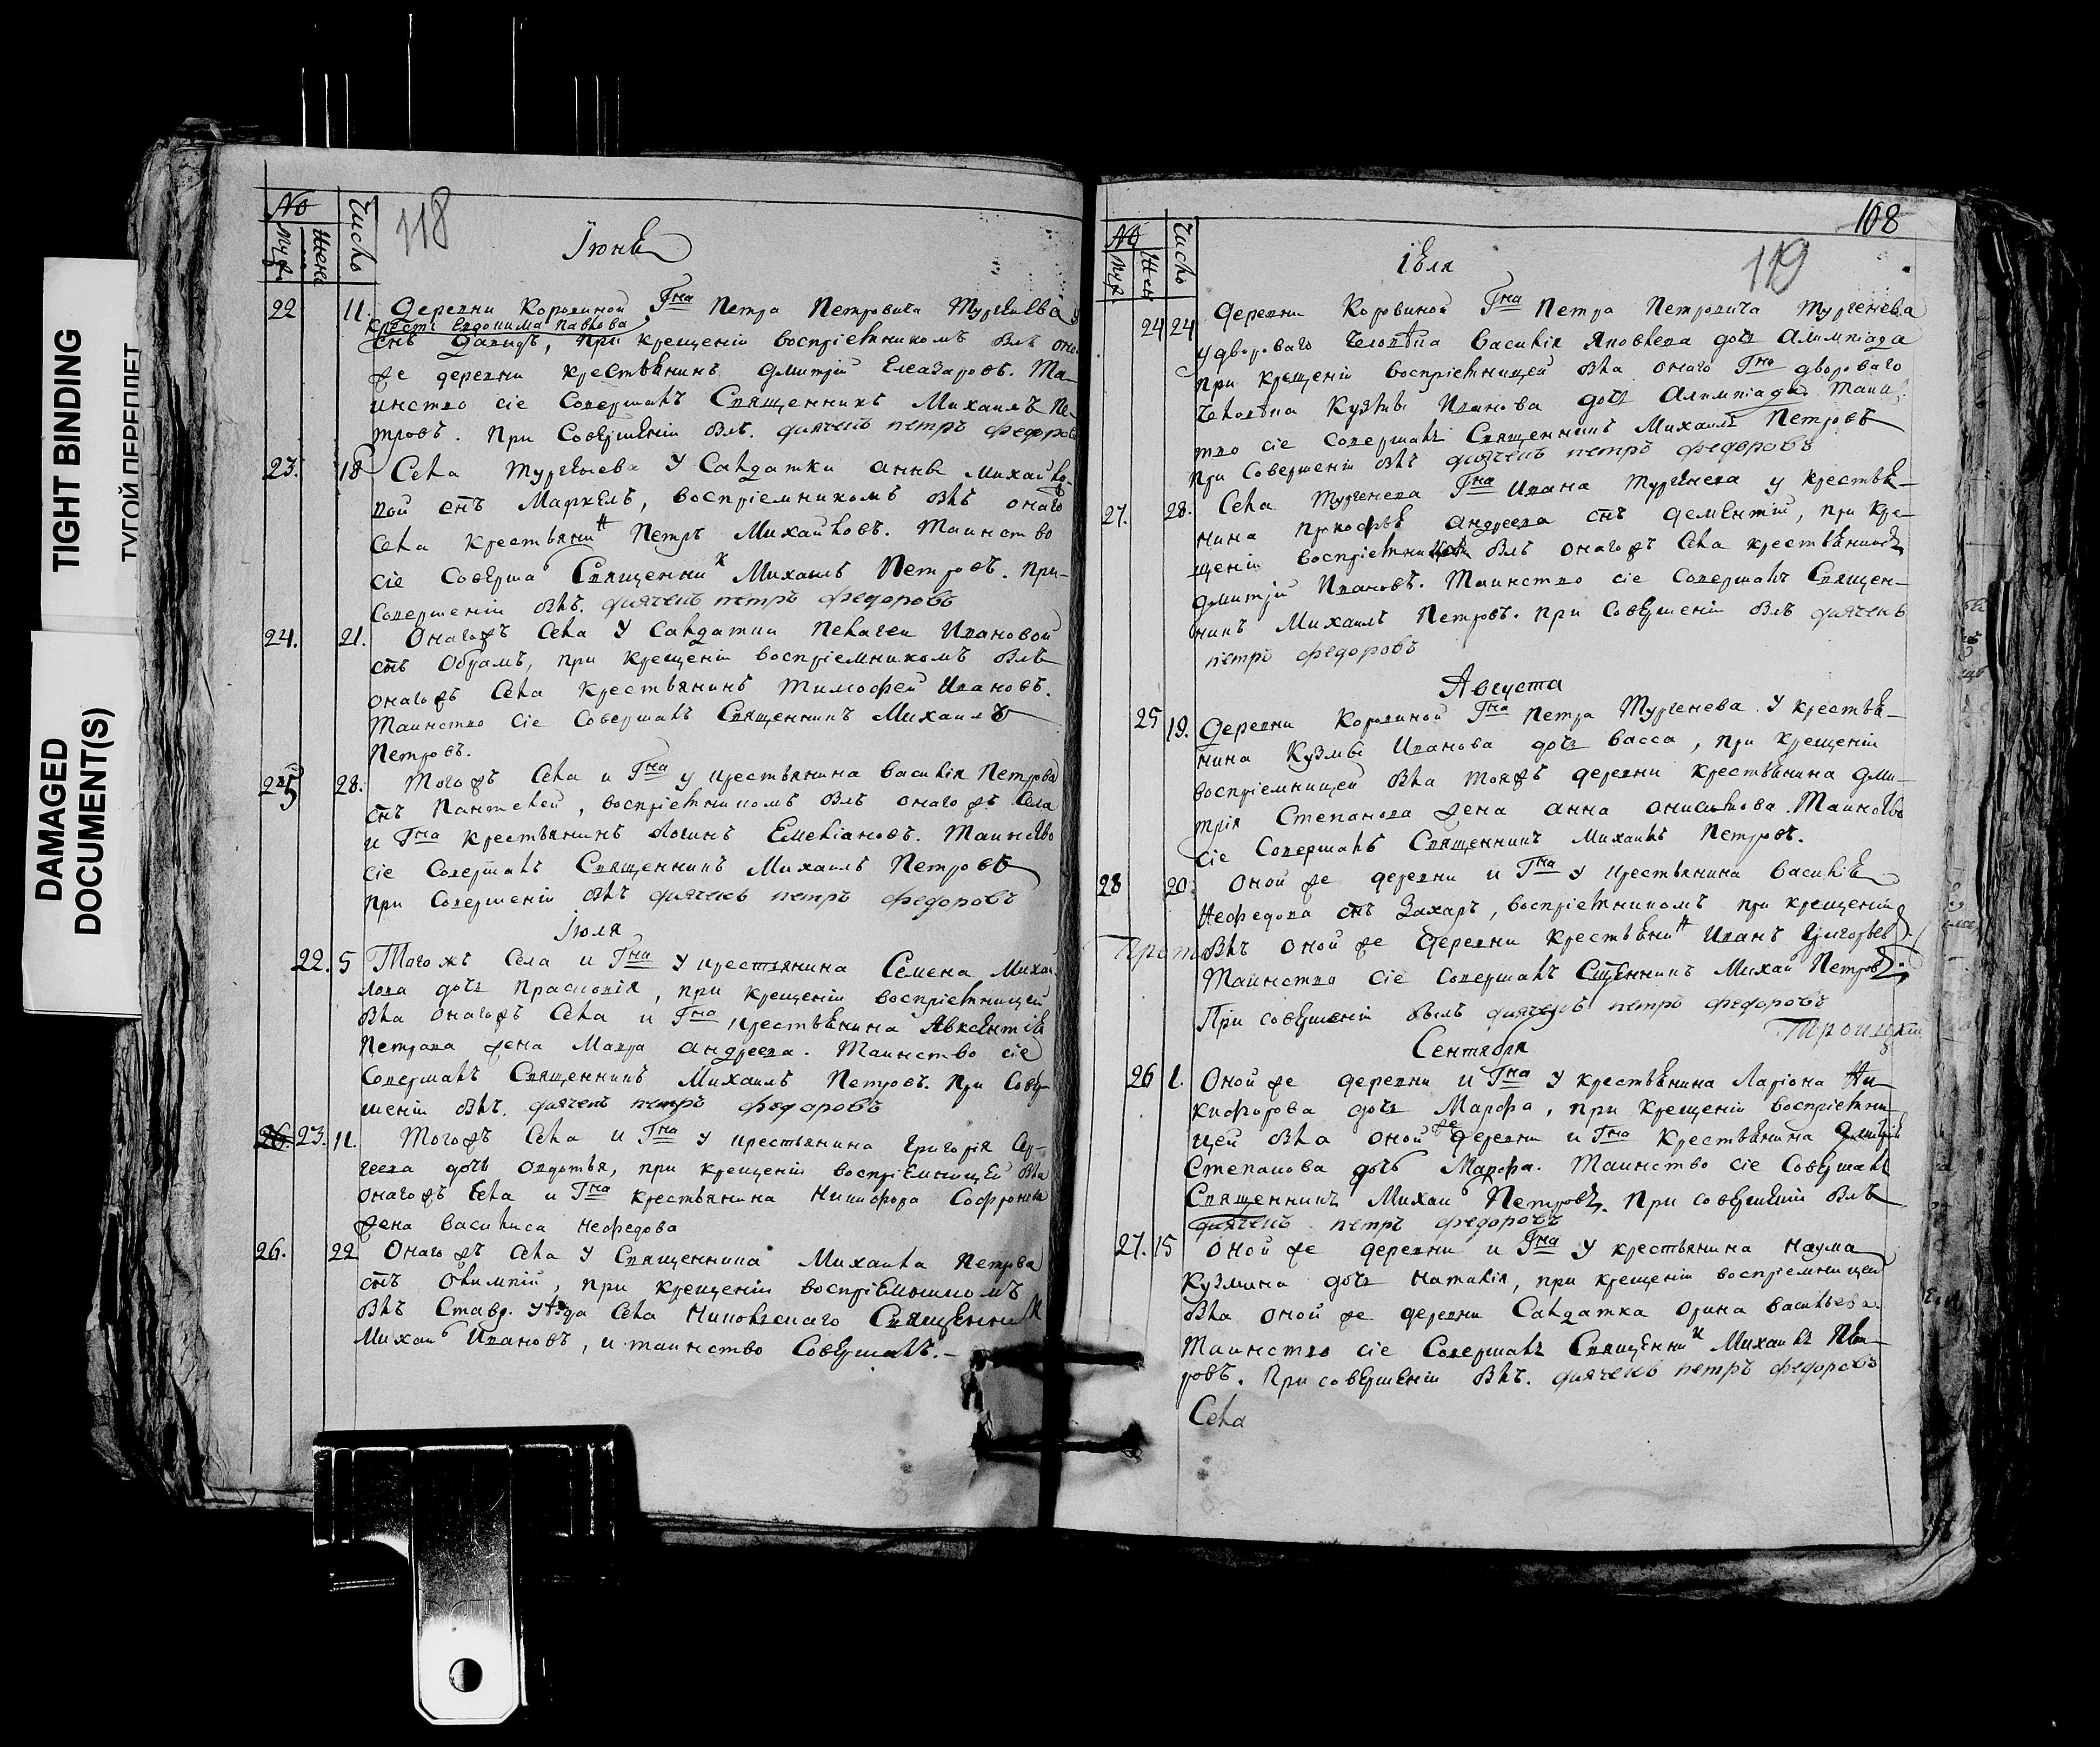 TIGHT BINDING
ТУГОЙ ПЕРЕПЛЕТ
DAMAGED
DOCUMENT(S)
№
муж.
жен
Число
118
Іюнь
22 11. Деревни Коровиной Гна Петра Петровича Тургенева у
крест: Евдокима Павлова
снъ Давидъ, при крещеніи воспріемникомъ былъ оной
же деревни крестьянинъ Дмитрій Елеазаровъ. Та-
инство сіе Совершалъ Священникъ Михаилъ Пе-
тровъ. При Совершеніи былъ. дьячекъ петръ федоровъ
23. 18 Села Тургенева У Салдатки анны Михайло-
вой снъ Маркелъ, воспріемникомъ былъ онаго
Села крестьянинъ Петръ Михайловъ. Таинство
сіе Соверша Священник Михаилъ Петровъ. При-
Совершеніи былъ. дьячекъ петръ федоровъ
24. 21. Онагожъ Села У Салдатки Пелагеи Ивановой
снъ Обрамъ, при крещеніи воспріемникомъ былъ
онагожъ Села крестьянинъ Тимофей Ивановъ.
Таинство сіе Совершалъ Священникъ Михаилъ
Петровъ.
25 28. Тогожъ Села и Гна у крестьянина Василія Петрова
снъ Пантелей, воспріемникомъ былъ онаго жъ Села
и Гна крестьянинъ Логинъ Емеліановъ. Таинство
сіе Совершалъ Священникъ Михаилъ Петровъ
при Совершеніи былъ дьячекъ петръ федоровъ
Іюля
22. 5 Того жъ Села и Гна у крестьянина Семена Михай
лова дочь Прасковія, при крещеніи воспріемницей
была онагожъ Села и Гна крестьянина Авксентія
Петрова жена Мавра андреева. Таинство сіе
Совершалъ Священникъ Михаилъ Петровъ. При Совер-
шеніи былъ. дьячекъ петръ федоровъ
26. 23. 11. Тогожъ Села и Гна у крестьянина Григорія Сер-
геева дочь овдотья, при крещеніи воспріемницей была
онагожъ Села и Гна крестьянина Никифора Софронова
жена василиса нефедова
26. 22 Онаго жъ Села У Священника Михаила Петрова
снъ Олимпій, при крещеніи воспріемникомъ
былъ Ставр. уѣзда Села Никольскаго Священник
Михаил Ивановъ, и таинство Совершалъ.-
№
муж.
жен
Число
108
119
Іюля
24 24 Деревни Коровиной Гна Петра Петровича Тургенева
у двороваго человѣка Василія Яковлева дочь Алимпіада
при крещеніи воспріемницей была онаго Гна двороваго
человѣка Кузмы Иванова дочь Алимпіада. Таинс
тво сіе Совершалъ Священникъ Михаилъ Петровъ
при Совершеніи былъ дьячекъ петръ федоровъ
27. 28. Села Тургенева Гна Ивана Тургенева у крестья-
нина прокофья андреева снъ дементій, при кре-
щеніи воспріемникомъ былъ онагожъ Села крестьянинъ
Дмитрій Ивановъ. Таинство сіе Совершалъ Священ-
никъ Михаилъ Петровъ. При Совершеніи былъ дьячекъ
петръ федоровъ
Августа
25 19. Деревни Коровиной Гна Петра Тургенева У крестья-
нина Кузмы Иванова дочь васса, при крещеніи
воспріемницей была тояжъ деревни крестьянина дми-
трія Степанова жена анна онисимова. Таинство
сіе Совершалъ Священникъ Михаилъ Петровъ.
28 20 Оной же деревни и Гна у крестьянина василія
Нефедова снъ Захаръ, воспріемникомъ при крещеніи
былъ оной же Деревни крестьянинъ Иванъ Григорьев.
Таинство сіе Совершалъ Сщенникъ Михаи Петровъ
При совершеніи былъ дьячекъ петръ федоровъ
Троицкій
Сентября
26 1. Оной же деревни и Гна у крестьянина Ларіона Ни-
кифорова дочь Марфа, при крещеніи воспріемни
цей была оной же деревни и Гна крестьянина Дмитрія
Степанова дочь Марфа. Таинство сіе Совершалъ
Священникъ Михаи Петровъ. При совершеніи былъ
дьячекъ петръ федоровъ
27. 15 Оной же деревни и Гна у крестьянина Наума
Кузмина дочь наталія, при крещеніи воспріемницей
была оной же деревни Салдатка орина васильева.
Таинство сіе Совершалъ Священник Михаилъ Пет
ровъ. При совершеніи былъ. дьячекъ петръ федоровъ
Села